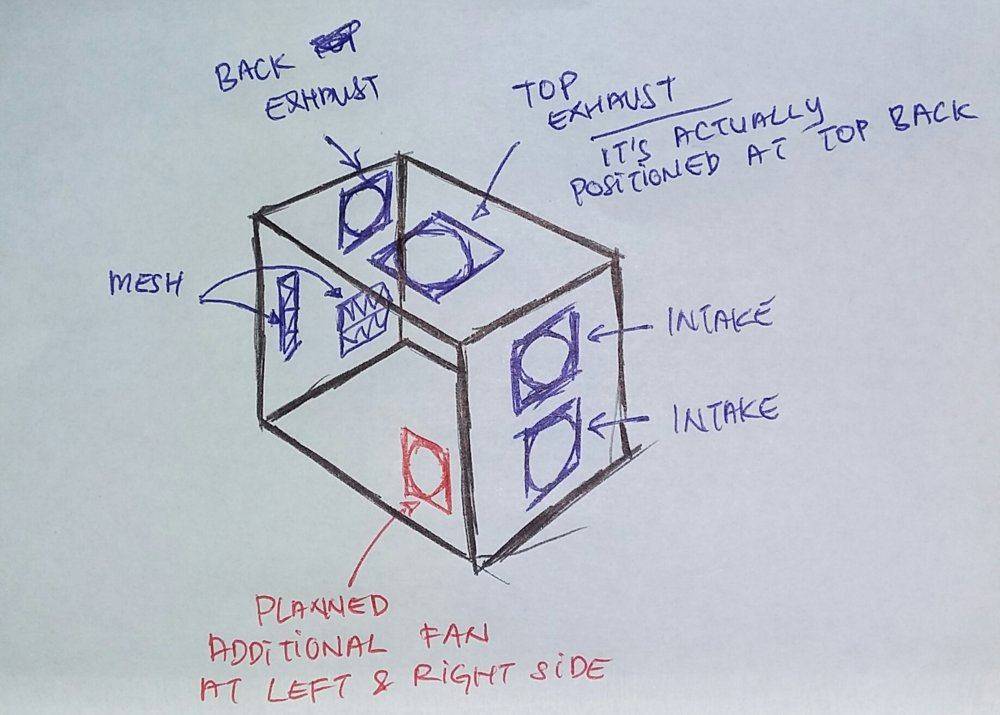 BACK
EXHAUST
TOP
EXHAUST
IT'S ACTUALLY
POSITIONED AT TOP BACK
MESH
INTAKE
INTAKE
PLANNED
ADDITIONAL FAN
AT LEFT & RIGHT SIDE